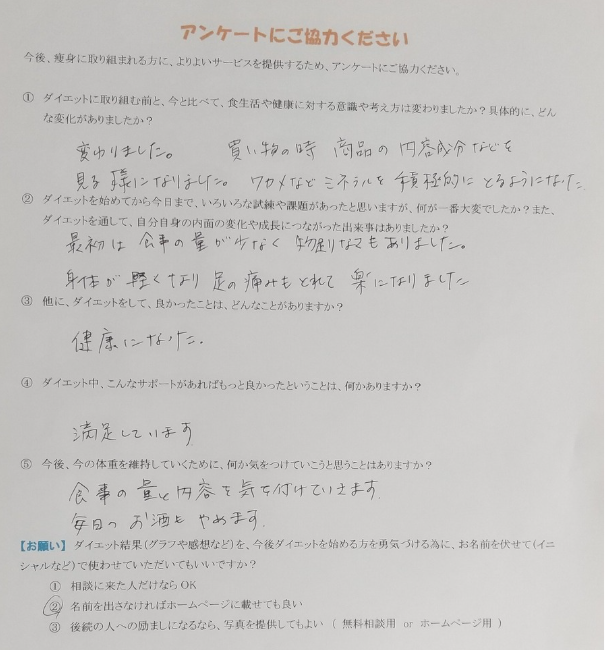 アンケートにご協力ください
今後、痩身に取り組まれる方に、よりよいサービスを提供するため、アンケートにご協力ください。
① ダイエットに取り組む前と、今と比べて、食生活や健康に対する意識や考え方は変わりましたか？具体的に、どん
な変化がありましたか？
変わりました。 買い物の時 商品の内容成分などを
見る様になりました。 ワカメなどミネラルを積極的にとるようになった
② ダイエットを始めてから今日まで、いろいろな試練や課題があったと思いますが、何が一番大変でしたか？また、
ダイエットを通して、自分自身の内面の変化や成長につながった出来事はありましたか？
最初は食事の量が少なく 物足りなさもありました。
身体が軽くなり 足の痛みもとれて 楽になりました
③ 他に、ダイエットをして、良かったことは、どんなことがありますか？
健康になった。
④ ダイエット中、こんなサポートがあればもっと良かったということは、何かありますか？
満足しています
⑤ 今後、今の体重を維持していくために、何か気をつけていこうと思うことはありますか？
食事の量と内容を気を付けていきます。
毎日のお酒も やめます。
【お願い】 ダイエット結果（グラフや感想など）を、今後ダイエットを始める方を勇気づける為に、お名前を伏せて（イニ
シャルなど）で使わせていただいてもいいですか？
① 相談に来た人だけなら OK
② 名前を出さなければホームページに載せても良い
③ 後続の人への励ましになるなら、写真を提供してもよい （ 無料相談用 or ホームページ用 ）